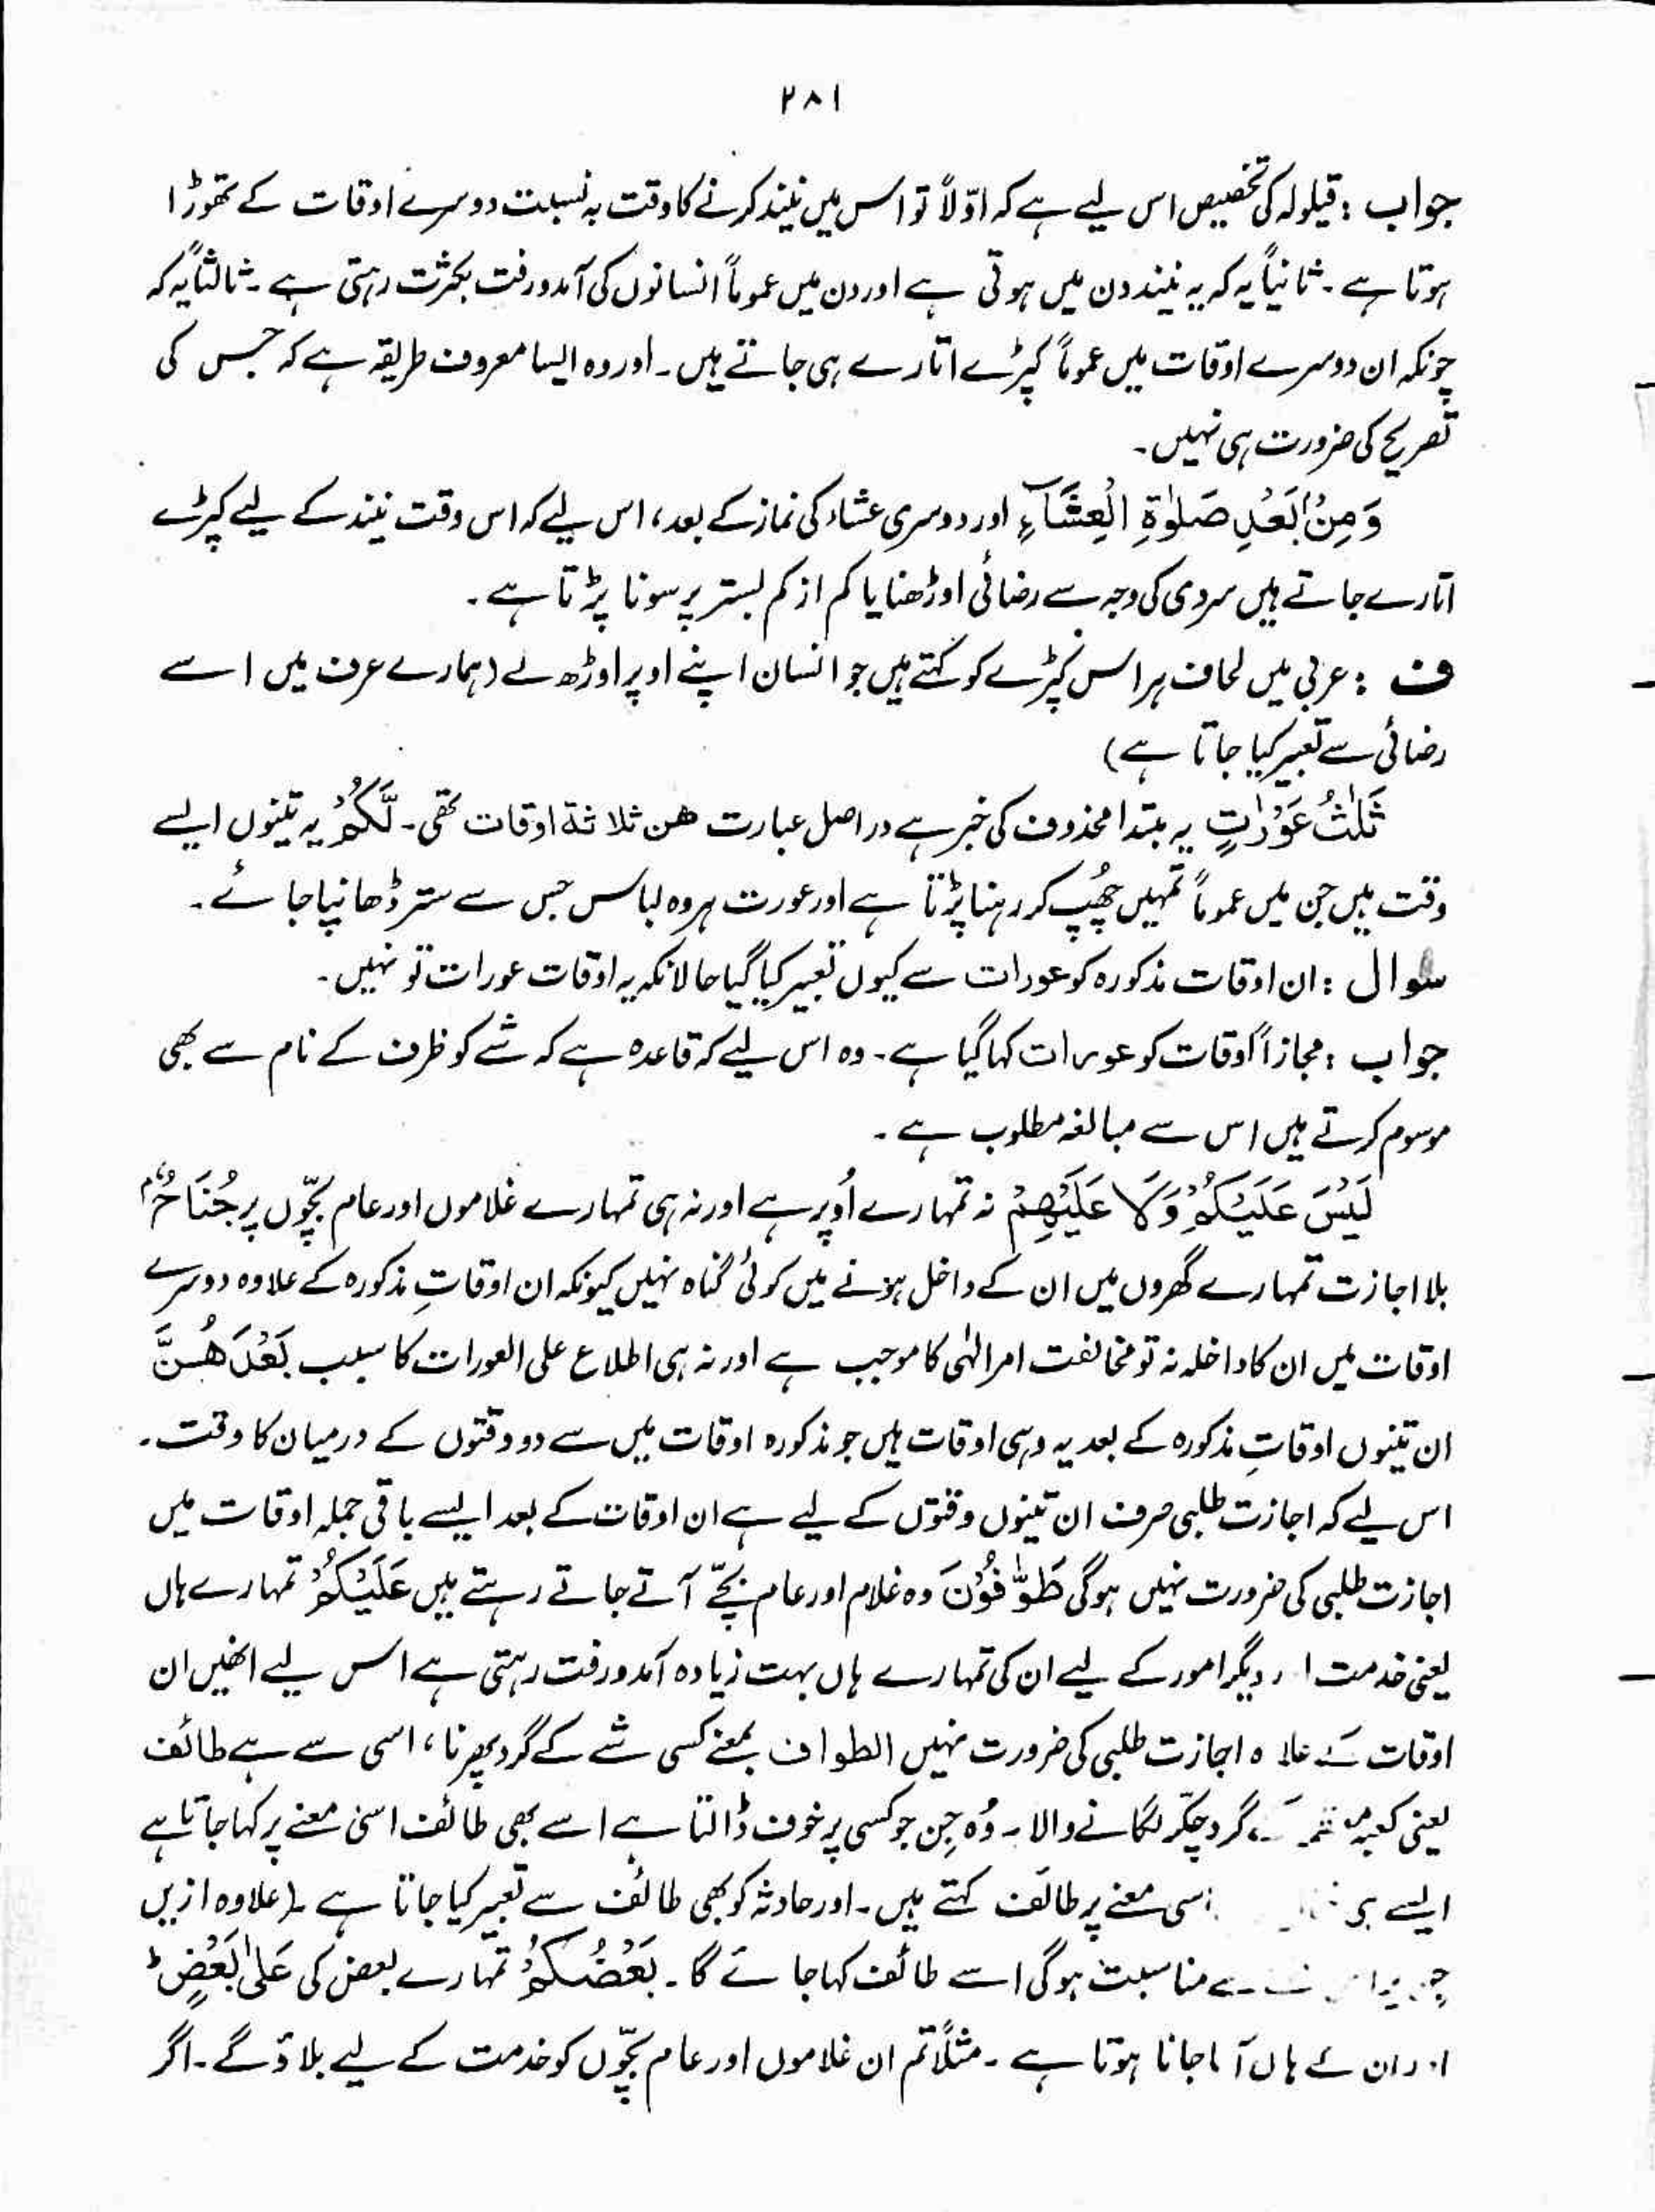 ۲۸۱
جواب : قیلولہ کی تخصیص اس لیے ہے کہ اوّلاً تو اس میں نیند کرنے کا وقت بہ نسبت دوسرے اوقات کے تھوڑا
ہوتا ہے ۔ ثانیاً یہ کہ یہ نیند دن میں ہوتی ہے اور دن میں عموماً انسانوں کی آمد و رفت بکثرت رہتی ہے ۔ ثالثاً یہ کہ
چونکہ ان دوسرے اوقات میں عموماً کپڑے اتارے ہی جاتے ہیں ۔ اور وہ ایسا معروف طریقہ ہے کہ جس کی
تصریح کی ضرورت ہی نہیں ۔
وَمِنْۢ بَعْدِ صَلٰوةِ الْعِشَآءِ اور دوسری عشاء کی نماز کے بعد، اس لیے کہ اس وقت نیند کے لیے کپڑے
اتارے جاتے ہیں سردی کی وجہ سے رضائی اوڑھنا یا کم از کم بستر پر سونا پڑتا ہے ۔
ف : عربی میں لحاف ہر اس کپڑے کو کہتے ہیں جو انسان اپنے اوپر اوڑھ لے (ہمارے عرف میں اسے
رضائی سے تعبیر کیا جاتا ہے)
ثَلٰثُ عَوْرٰتٍ یہ مبتدا محذوف کی خبر ہے دراصل عبارت ھن ثلاثۃ اوقات تھی ۔ لَّكُمْ یہ تینوں ایسے
وقت ہیں جن میں عموماً تمہیں چھُپ کر رہنا پڑتا ہے اور عورت ہر وہ لباس جس سے ستر ڈھانپا جائے ۔
سوال : ان اوقات مذکورہ کو عورات سے کیوں تعبیر کیا گیا حالانکہ یہ اوقات عورات تو نہیں ۔
جواب : مجازاً اوقات کو عورات کہا گیا ہے ۔ وہ اس لیے کہ قاعدہ ہے کہ شے کو ظرف کے نام سے بھی
موسوم کرتے ہیں اس سے مبالغہ مطلوب ہے ۔
لَيْسَ عَلَيْكُمْ وَلَا عَلَيْهِمْ نہ تمہارے اُوپر ہے اور نہ ہی تمہارے غلاموں اور عام بچّوں پر جُنَاحٌۢ
بلا اجازت تمہارے گھروں میں ان کے داخل ہونے میں کوئی گناہ نہیں کیونکہ ان اوقاتِ مذکورہ کے علاوہ دوسرے
اوقات میں ان کا داخلہ نہ تو مخالفت امر الٰہی کا موجب ہے اور نہ ہی اطلاع علی العورات کا سبب بَعْدَهُنَّ
ان تینوں اوقاتِ مذکورہ کے بعد یہ وہی اوقات ہیں جو مذکورہ اوقات میں سے دو وقتوں کے درمیان کا وقت ۔
اس لیے کہ اجازت طلبی صرف ان تینوں وقتوں کے لیے ہے ان اوقات کے بعد ایسے باقی جملہ اوقات میں
اجازت طلبی کی ضرورت نہیں ہوگی طَوّٰفُوْنَ وہ غلام اور عام بچّے آتے جاتے رہتے ہیں عَلَيْكُمْ تمہارے ہاں
یعنی خدمت اور دیگر امور کے لیے ان کی تمہارے ہاں بہت زیادہ آمد و رفت رہتی ہے اس لیے انھیں ان
اوقات کے علاوہ اجازت طلبی کی ضرورت نہیں الطواف بمعنے کسی شے کے گرد پھرنا، اسی سے ہے طائف
یعنی کعبہ گرد چکّر لگانے والا ۔ وُہ جِن جو کسی پر خوف ڈالتا ہے اسے بھی طائف اسی معنے پر کہا جاتا ہے
ایسے اسی معنے پر طائف کہتے ہیں ۔ اور حادثہ کو بھی طائف سے تعبیر کیا جاتا ہے ۔ (علاوہ ازیں
سے مناسبت ہوگی اسے طائف کہا جائے گا ۔ بَعْضُكُمْ تمہارے بعض کی عَلٰى بَعْضٍ ؕ
اور ان کے ہاں آنا جانا ہوتا ہے ۔ مثلاً تم ان غلاموں اور عام بچّوں کو خدمت کے لیے بلاؤ گے ۔ اگر